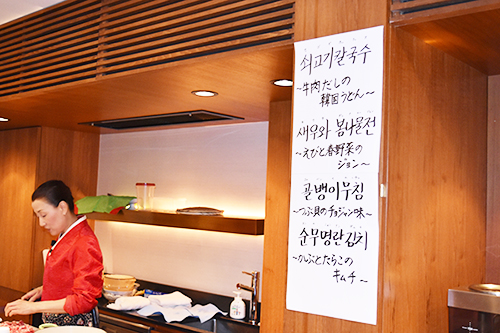 쇠고기칼국수
~牛肉だしの
韓国うどん~
새우와 봄나물전
~えびと春野菜の
ジョン~
골뱅이무침
~つぶ貝のチョジャン味~
순무명란김치
~かぶとたらこの
キムチ~